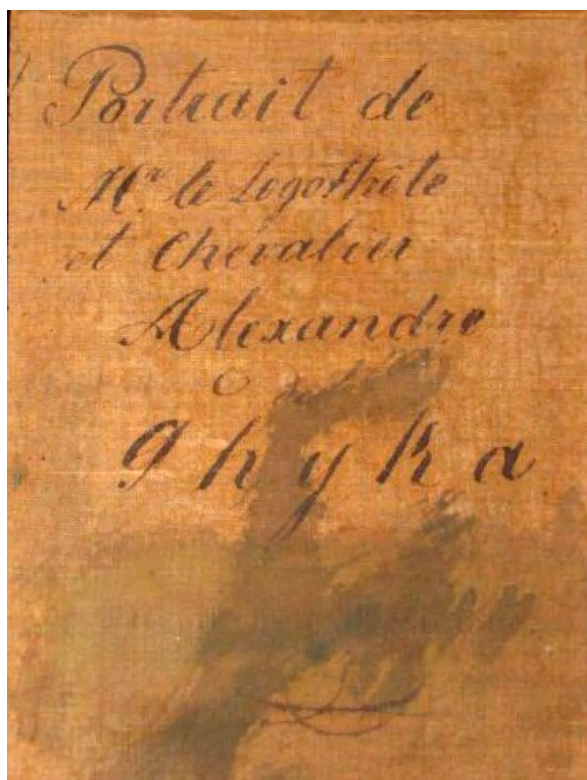 Portrait de
Mr. le Logothète
et Chevalier
Alexandre
Ghyka